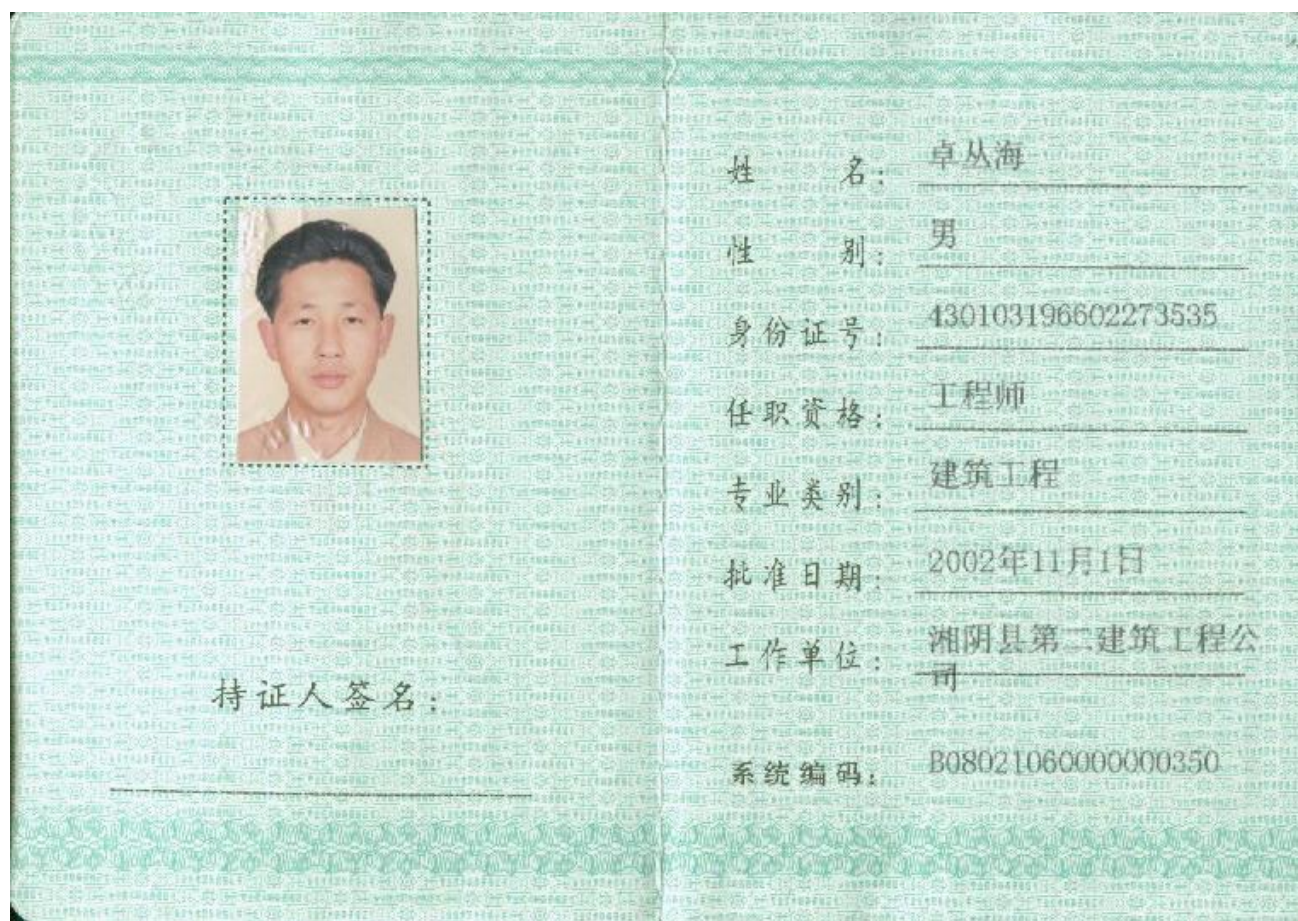 持证人签名：
姓名：卓从海
性别：男
身份证号：430103196602273535
任职资格：工程师
专业类别：建筑工程
批准日期：2002年11月1日
工作单位：湘阴县第二建筑工程公
司
系统编码：B08021060000000350